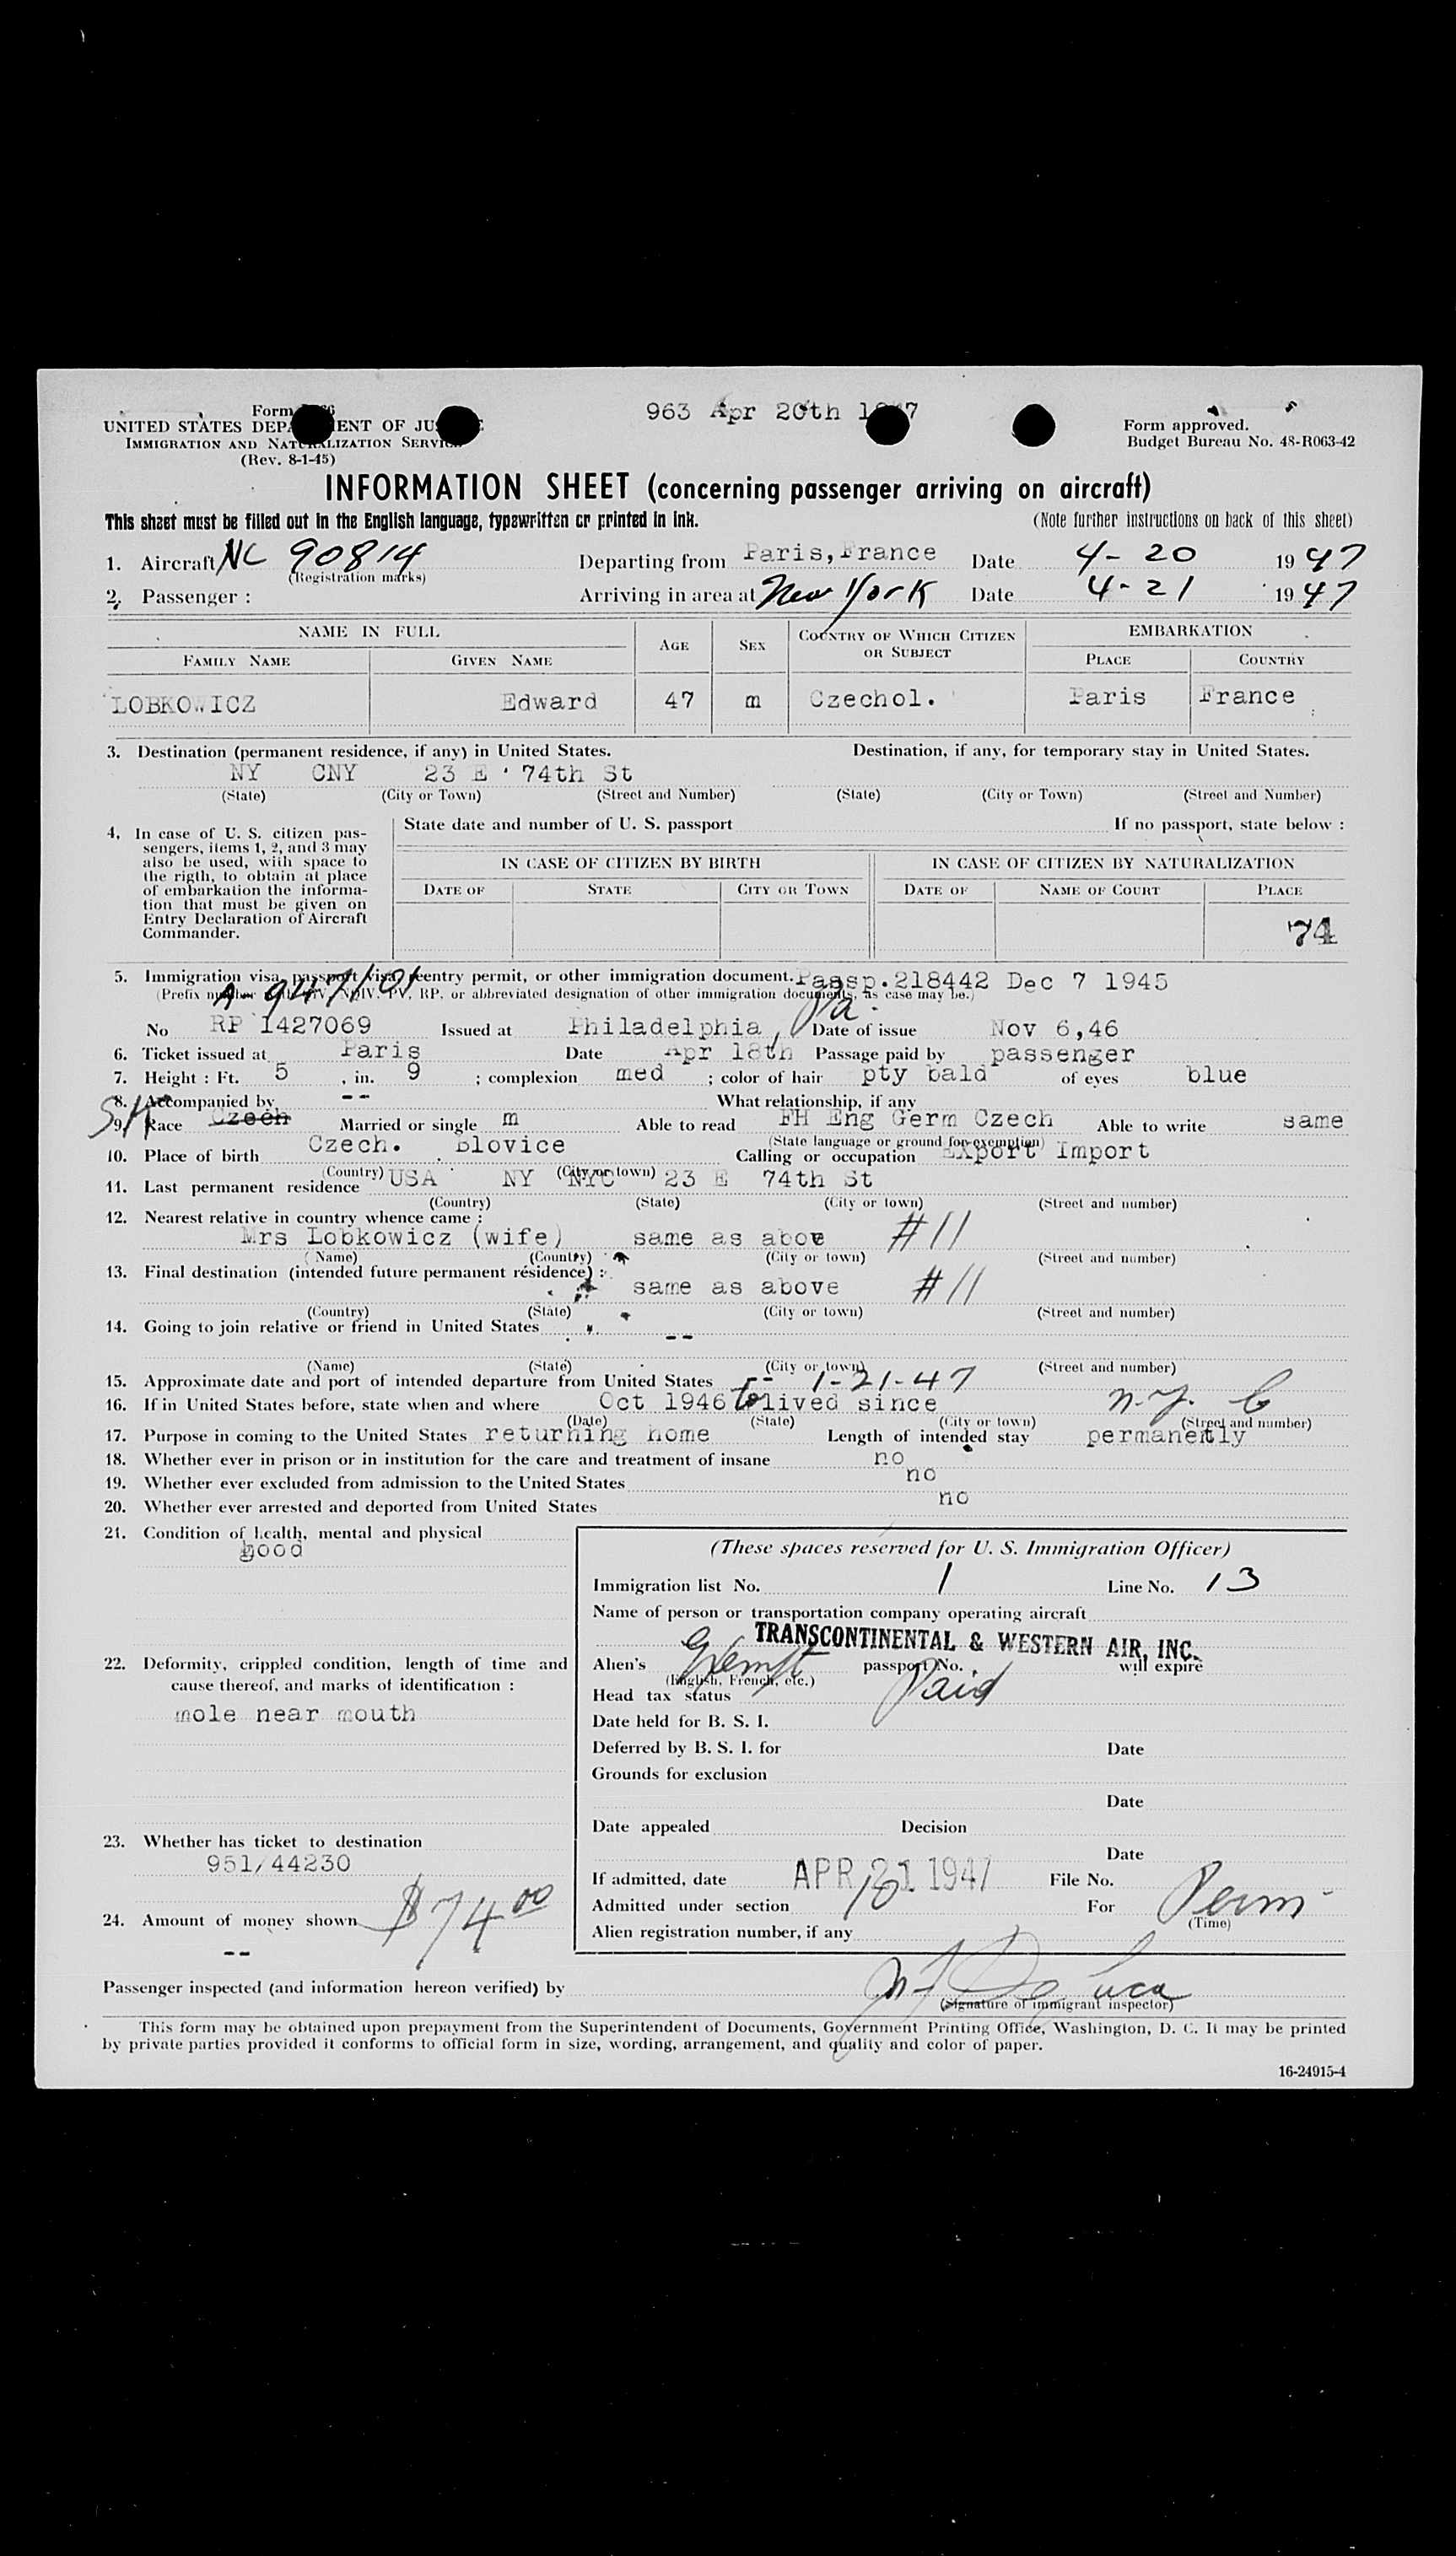 963 Apr 20th 1947
Form
UNITED STATES DEPARTMENT OF JUSTICE
IMMIGRATION AND NATURALIZATION SERVICE
(Rev. 8-1-45)
Form approved.
Budget Bureau No. 48-R063-42
INFORMATION SHEET (concerning passenger arriving on aircraft)
This sheet must be filled out in the English language, typewritten or printed in ink. (Note further instructions on back of this sheet)
1. Aircraft NC 90814 Departing from Paris, France Date 4-20 1947
(Registration marks)
2. Passenger : Arriving in area at New York Date 4-21 1947
NAME IN FULL AGE SEX COUNTRY OF WHICH CITIZEN OR SUBJECT EMBARKATION
FAMILY NAME GIVEN NAME PLACE COUNTRY
LOBKOWICZ Edward 47 m Czechol. Paris France
3. Destination (permanent residence, if any) in United States. Destination, if any, for temporary stay in United States.
NY CNY 23 E 74th St
(State) (City or Town) (Street and Number) (State) (City or Town) (Street and Number)
4. In case of U. S. citizen passengers, items 1, 2, and 3 may
also be used, with space to
the rigth, to obtain at place
of embarkation the information that must be given on
Entry Declaration of Aircraft
Commander.
State date and number of U. S. passport If no passport, state below :
IN CASE OF CITIZEN BY BIRTH IN CASE OF CITIZEN BY NATURALIZATION
DATE OF STATE CITY OR TOWN DATE OF NAME OF COURT PLACE
74
5. Immigration visa, passport visa, reentry permit, or other immigration document. Paasp.218442 Dec 7 1945
A 947101
(Prefix number QIV, NQIV, PV, RP, or abbreviated designation of other immigration documents, as case may be.)
No RP 1427069 Issued at Philadelphia, Pa. Date of issue Nov 6,46
6. Ticket issued at Paris Date Apr 18th Passage paid by passenger
7. Height : Ft. 5 , in. 9 ; complexion med ; color of hair pty bald of eyes blue
8. Accompanied by -- What relationship, if any
9. Race Czech Married or single m Able to read FH Eng Germ Czech Able to write same
(State language or ground for exemption)
10. Place of birth Czech. Blovice Calling or occupation Export Import
(Country) (City or town)
11. Last permanent residence USA NY NYC 23 E 74th St
(Country) (State) (City or town) (Street and number)
12. Nearest relative in country whence came :
Mrs Lobkowicz (wife) same as above #11
(Name) (Country) (City or town) (Street and number)
13. Final destination (intended future permanent résidence) :
same as above #11
(Country) (State) (City or town) (Street and number)
14. Going to join relative or friend in United States --
(Name) (State) (City or town) (Street and number)
15. Approximate date and port of intended departure from United States -- 1-21-47
16. If in United States before, state when and where Oct 1946 to lived since N.Y. C
(Date) (State) (City or town) (Street and number)
17. Purpose in coming to the United States returning home Length of intended stay permanently
18. Whether ever in prison or in institution for the care and treatment of insane no
19. Whether ever excluded from admission to the United States no
20. Whether ever arrested and deported from United States no
21. Condition of health, mental and physical
good
22. Deformity, crippled condition, length of time and
cause thereof, and marks of identification :
mole near mouth
23. Whether has ticket to destination
951/44230
24. Amount of money shown $74 00
--
(These spaces reserved for U. S. Immigration Officer)
Immigration list No. 1 Line No. 13
Name of person or transportation company operating aircraft
TRANSCONTINENTAL & WESTERN AIR, INC.
Alien's passport No. will expire
(English, French, etc.)
Head tax status Paid
Date held for B. S. I.
Deferred by B. S. I. for Date
Grounds for exclusion
Date
Date appealed Decision
Date
If admitted, date APR 21 1947 File No.
Admitted under section For Perm
(Time)
Alien registration number, if any
Passenger inspected (and information hereon verified) by
(Signature of immigrant inspector)
This form may be obtained upon prepayment from the Superintendent of Documents, Government Printing Office, Washington, D. C. It may be printed
by private parties provided it conforms to official form in size, wording, arrangement, and quality and color of paper.
16-24915-4